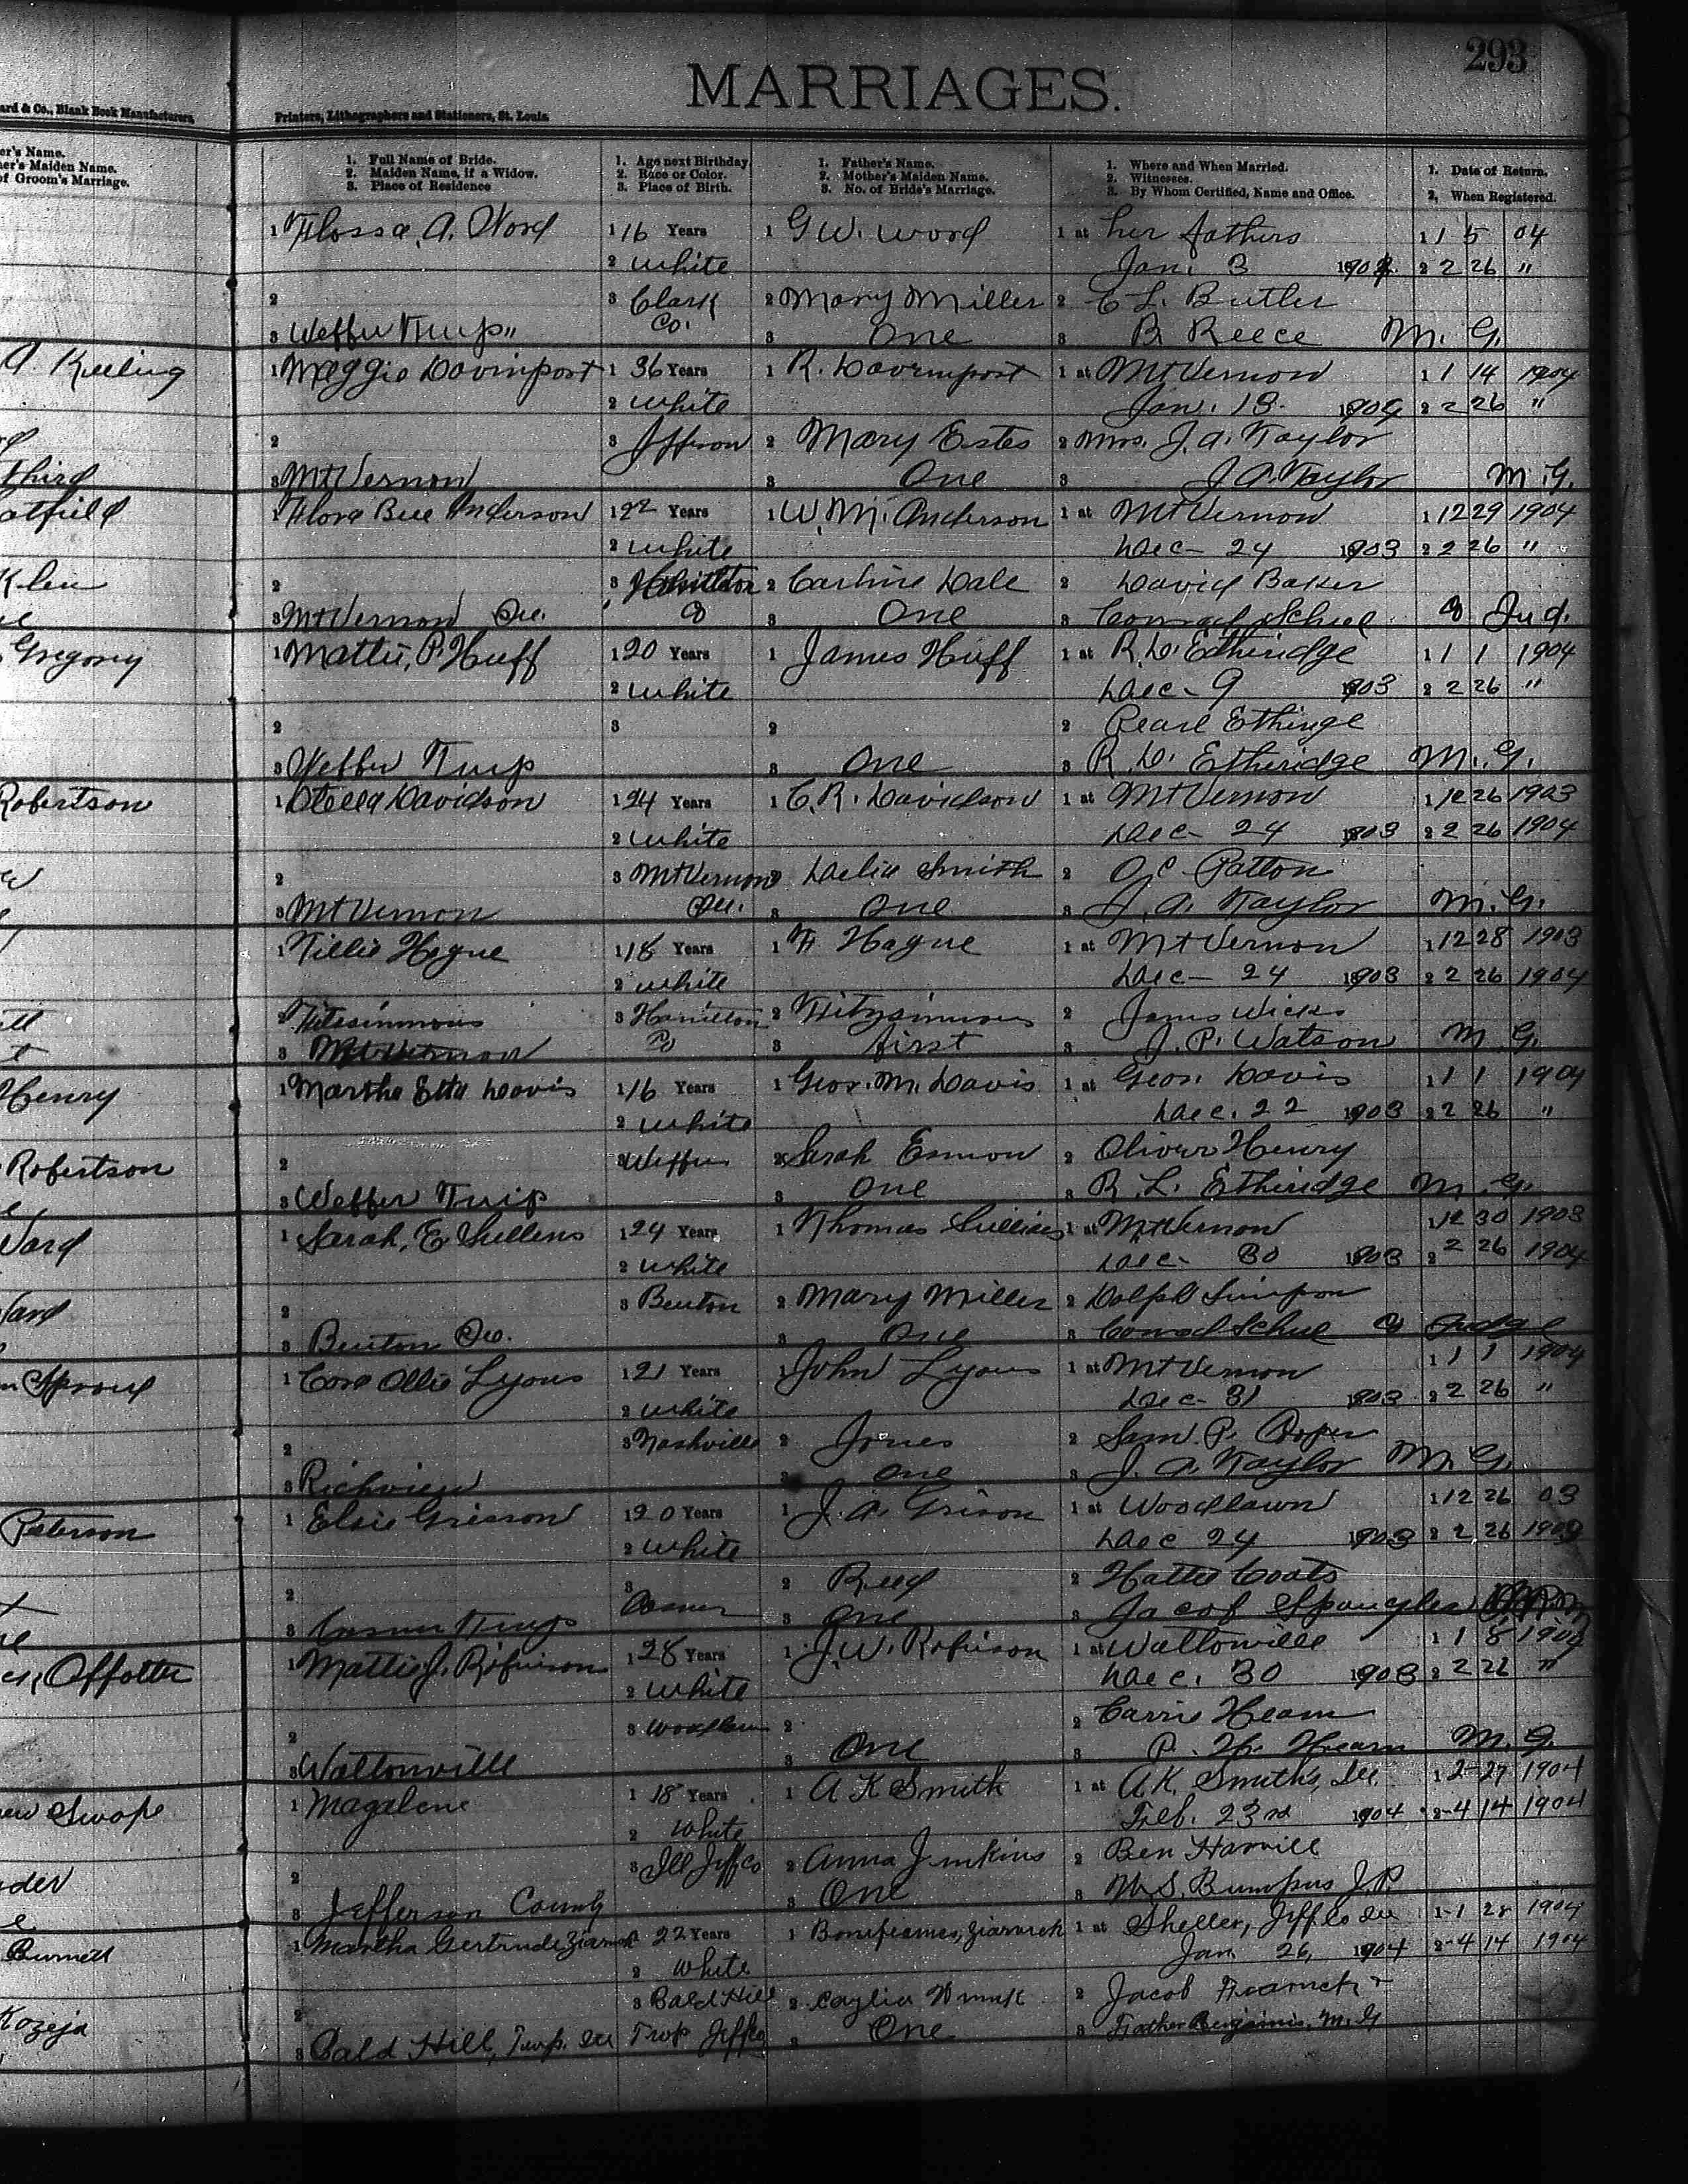 293
MARRIAGES.
ard & Co., Blank Book Manufacturers,
Printers, Lithographers and Stationers, St. Louis.
er's Name.
er's Maiden Name.
of Groom's Marriage.
1. Full Name of Bride.
2. Maiden Name, if a Widow.
3. Place of Residence
1. Age next Birthday
2. Race or Color.
3. Place of Birth.
1. Father's Name.
2. Mother's Maiden Name.
3. No. of Bride's Marriage.
1. Where and When Married.
2. Witnesses.
3. By Whom Certified, Name and Office.
1. Date of Return.
2. When Registered.
1 Flossa, A. Word 1 16 Years 1 G W. Word 1 at her fathers 1 1 5 04
2 White Jan. 3 1904 2 2 26 "
2 3 Clark Co. 2 Mary Miller 2 C L. Butler
3 Webber Twp" 3 One 3 B. Reece M. G.
A. Keeling 1 Maggie Davinport 1 36 Years 1 R. Davinport 1 at Mt Vernon 1 1 14 1904
2 White Jan. 13. 1904 2 2 26 "
2 3 Jffrson 2 Mary Estes 2 Mrs. J. A. Taylor
Third 3 Mt Vernon 3 One 3 J A. Taylor M. G.
atfield 1 Flora Bell Anderson 1 22 Years 1 W. M. Anderson 1 at Mt Vernon 1 12 29 1904
2 White Dec- 24 1903 2 2 26 "
Klen 2 3 Hamilton 2 Carline Dale 2 David Baker
3 Mt Vernon Ill. Co 3 One 3 Conrad Schul Co Jud.
Gregory 1 Mattie, P. Huff 1 20 Years 1 James Huff 1 at R. L. Etheridge 1 1 1 1904
2 White Dec- 9 1903 2 2 26 "
2 3 2 2 Pearl Ethinge
3 Webber Twp 3 One 3 R. L. Etheridge M. G.
Robertson 1 Stella Davidson 1 24 Years 1 C. R. Davidson 1 at Mt Vernon 1 12 26 1903
2 White Dec- 24 1903 2 2 26 1904
2 3 Mt Vernon Ill. 2 Delia Smith 2 O. C. Patton
3 Mt Vernon 3 One 3 J. A. Taylor M. G.
1 Tillie Hogue 1 18 Years 1 F Hague 1 at Mt Vernon 1 12 28 1903
2 White Dec- 24 1903 2 2 26 1904
2 Fitzsimmons 3 Hamilton Co 2 Fitzsimmons 2 James Wicks
3 Mt Vernon 3 first 3 J. P. Watson M G.
Henry 1 Martha Etta Davis 1 16 Years 1 Geor. M. Davis 1 at Geor. Davis 1 1 1 1904
2 White Dec. 22 1903 2 2 26 "
Robertson 2 3 Webber 2 Sarah Esmon 2 Oliver Henry
3 Webber Twp 3 One 3 R. L. Etheridge M. G.
Ward 1 Sarah, E Sullens 1 24 Years 1 Thomas Sullins 1 at Mt Vernon 1 12 30 1903
2 White Dec- 30 1903 2 2 26 1904
Ward 2 3 Benton 2 Mary Miller 2 Dolph Simpson
3 Benton Ill. 3 One 3 Conrad Schul Co Judge
Sproul 1 Cora Ollie Lyons 1 21 Years 1 John Lyons 1 at Mt Vernon 1 1 1 1904
2 White Dec- 31 1903 2 2 26 "
2 3 Nashville 2 Jones 2 Sam. P. Cooper
3 Richview 3 One 3 J. A. Taylor M. G.
Peterson 1 Elsie Grisson 1 20 Years 1 J. A. Grison 1 at Woodlawn 1 12 26 03
2 White Dec 24 1903 2 2 26 1903
2 3 Casner 2 Reed 2 Hattie Coats
3 Casner Twp 3 One 3 Jacob Spangler
Offolter 1 Mattie J. Robinson 1 28 Years 1 J. W. Robinson 1 at Waltonville 1 1 8 1904
2 White Dec. 30 1903 2 2 26 "
2 3 Woodlawn 2 2 Carrie Hearn
3 Waltonville 3 One 3 P. H. Hearn M. G.
Swope 1 Magalene 1 18 Years 1 A K Smith 1 at A. K. Smith's, Ill. 1 2-27 1904
2 White Feb. 23rd 1904 2-4 14 1904
2 3 Ill Jeff Co 2 Anna Jenkins 2 Ben Harvill
3 Jefferson County 3 One 3 M. S. Bumpus J. P.
Burnett 1 Martha Gertrude 1 22 Years 1 Bonifeamus, Ziarnick 1 at Sheller, Jeff Co Ill 1-1 28 1904
2 White Jan 26, 1904 2-4 14 1904
Kozeja 2 3 Bald Hill 2 2 Jacob
3 Bald Hill, Twp. Ill Twp Jeff Co 3 One 3 Father Benjamin. M. G